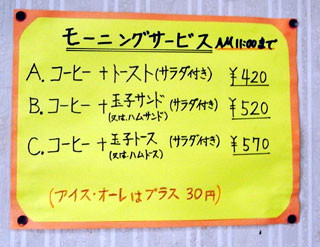 モーニングサービス AM 11:00まで
A. コーヒー + トースト (サラダ付き) ¥420
B. コーヒー + 玉子サンド (サラダ付き) ¥520
(又はハムサンド)
C. コーヒー + 玉子トース (サラダ付き) ¥570
(又はハムトース)
(アイス・オーレはプラス 30円)